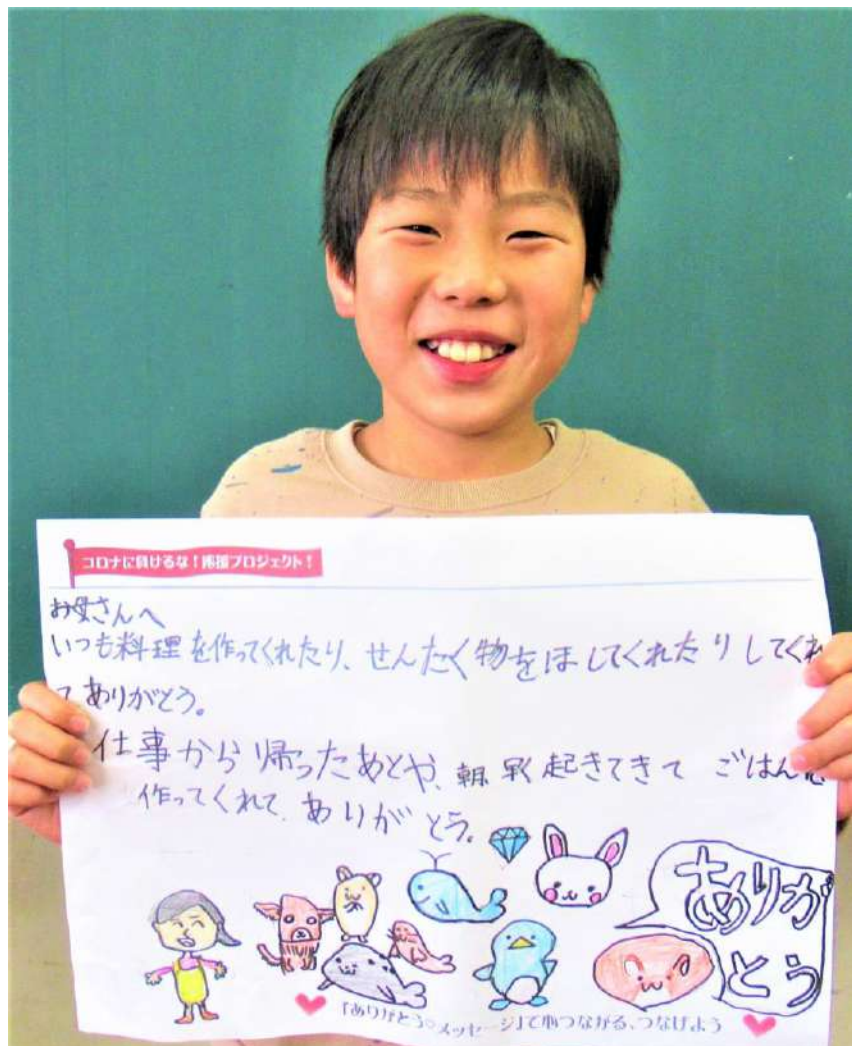 コロナに負けるな！応援プロジェクト！
お母さんへ
いつも料理を作ってくれたり、せんたく物をほしてくれたりしてくれ
てありがとう。
仕事から帰ったあとや、朝早く起きてきてごはんを
作ってくれて、ありがとう。
ありが
とう
「ありがとう○メッセージ」で心つながる、つなげよう